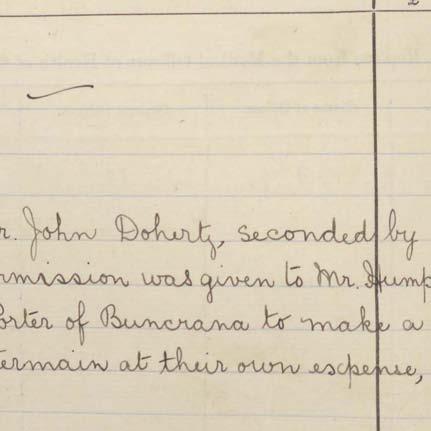 r. John Doherty, seconded by
rmission was given to Mr. Hump
orter of Buncrana to make a
termain at their own expense,